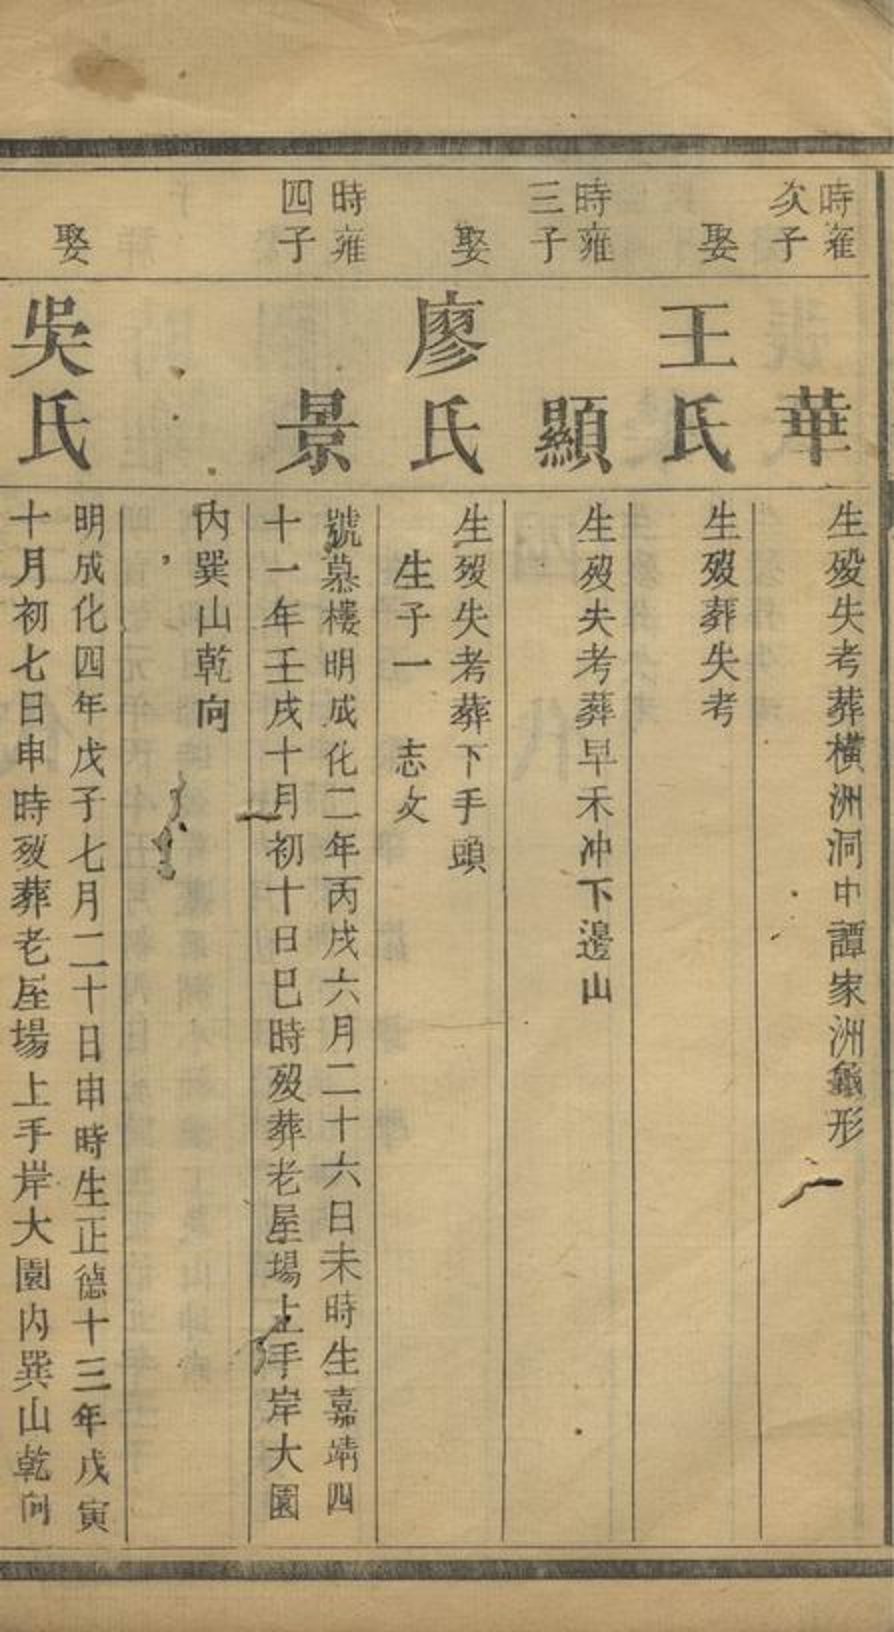 時雍
次子
華
生歿失考葬橫洲洞中譚家洲龜形
娶
王氏
生歿葬失考
時雍
三子
顯
生歿失考葬早禾冲下邊山
娶
廖氏
生歿失考葬下手頭
生子一　志文
時雍
四子
景
號慕樓明成化二年丙戌六月二十六日未時生嘉靖四
十一年壬戌十月初十日巳時歿葬老屋場上手岸大園
內巽山乾向
娶
吳氏
明成化四年戊子七月二十日申時生正德十三年戊寅
十月初七日申時歿葬老屋場上手岸大園內巽山乾向